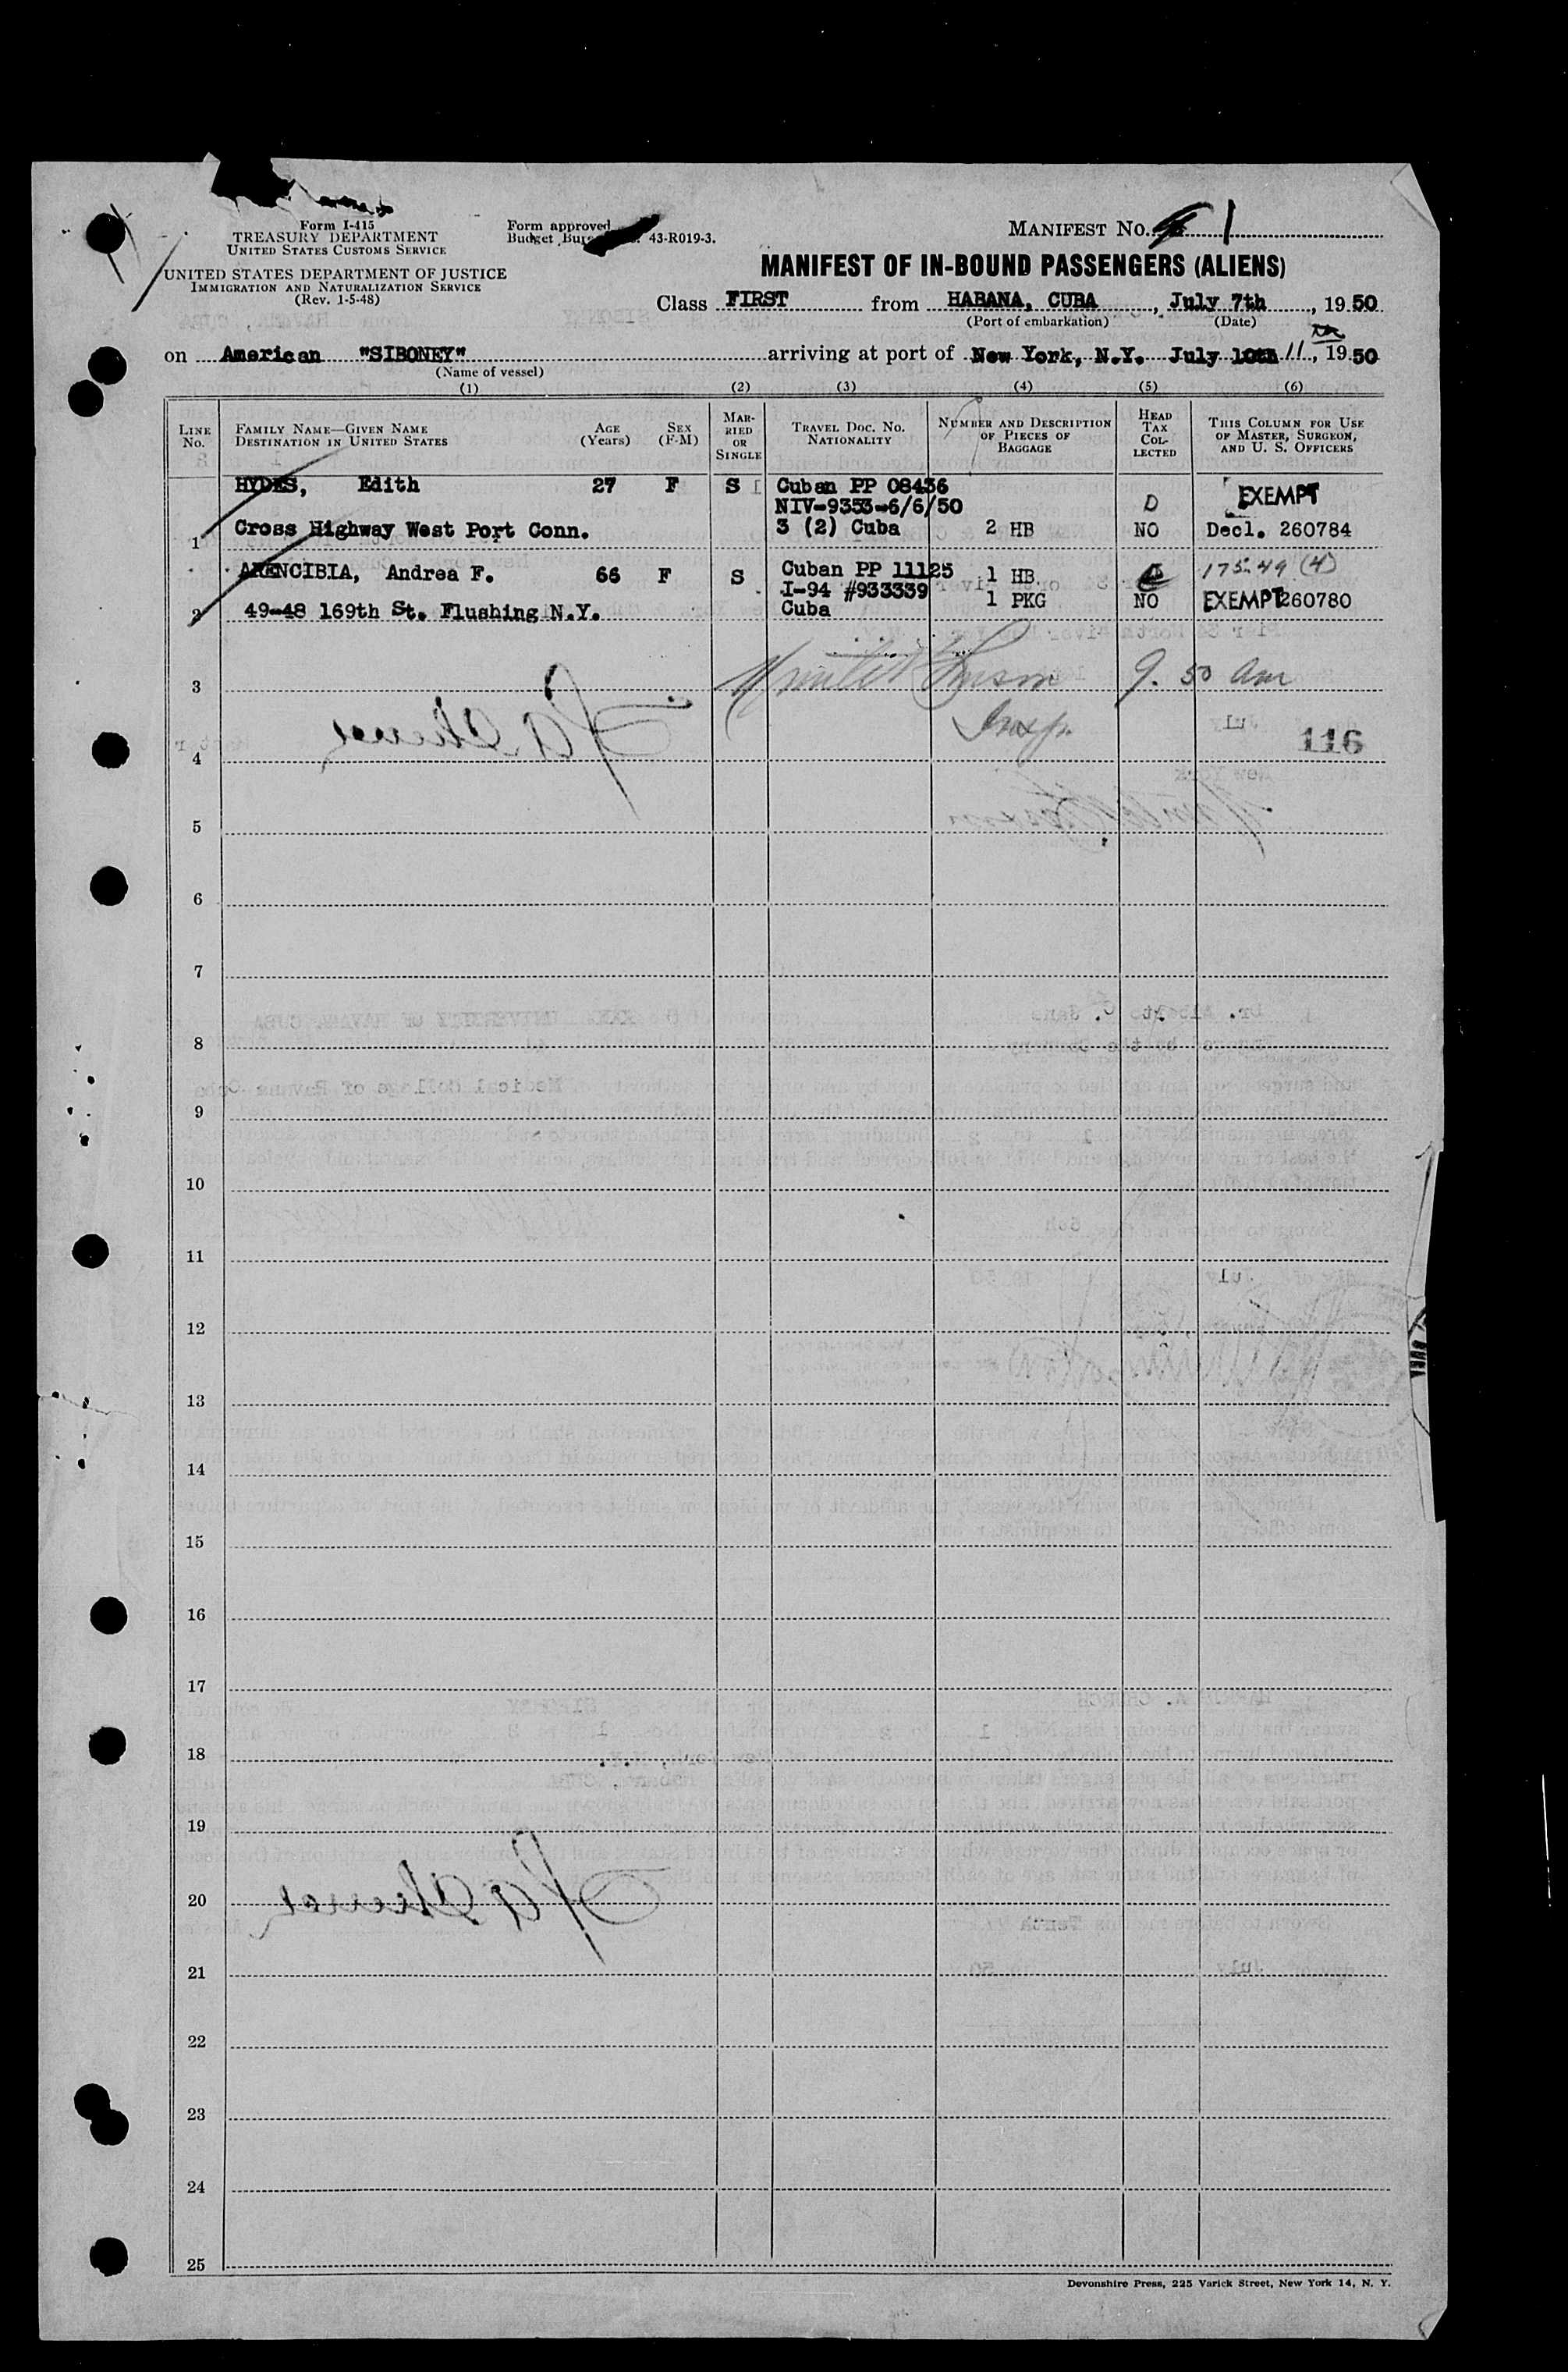 Form I-415
TREASURY DEPARTMENT
UNITED STATES CUSTOMS SERVICE
UNITED STATES DEPARTMENT OF JUSTICE
IMMIGRATION AND NATURALIZATION SERVICE
(Rev. 1-5-48)
Form approved
Budget 43-R019-3.
MANIFEST NO. 1
MANIFEST OF IN-BOUND PASSENGERS (ALIENS)
Class FIRST from HABANA, CUBA, July 7th, 1950
(Port of embarkation) (Date)
on American "SIBONEY" arriving at port of New York, N.Y. July 10th 11, 1950
(Name of vessel)
(1) (2) (3) (4) (5) (6)
LINE No.
FAMILY NAME—GIVEN NAME
DESTINATION IN UNITED STATES
AGE (Years)
SEX (F-M)
MARRIED OR SINGLE
TRAVEL DOC. NO. NATIONALITY
NUMBER AND DESCRIPTION OF PIECES OF BAGGAGE
HEAD TAX COLLECTED
THIS COLUMN FOR USE OF MASTER, SURGEON, AND U. S. OFFICERS
HYDES, Edith 27 F S Cuban PP 08436
NIV-9353-6/6/50 EXEMPT
1 Cross Highway West Port Conn. 3 (2) Cuba 2 HB NO Decl. 260784
ARENCIBIA, Andrea F. 66 F S Cuban PP 11125 1 HB 175.49 (4)
I-94 #933339 1 PKG
2 49-48 169th St. Flushing N.Y. Cuba NO EXEMPT 260780
3 9.50 am
Insp.
116
4
5
6
7
8
9
10
11
12
13
14
15
16
17
18
19
20
21
22
23
24
25
Devonshire Press, 225 Varick Street, New York 14, N. Y.